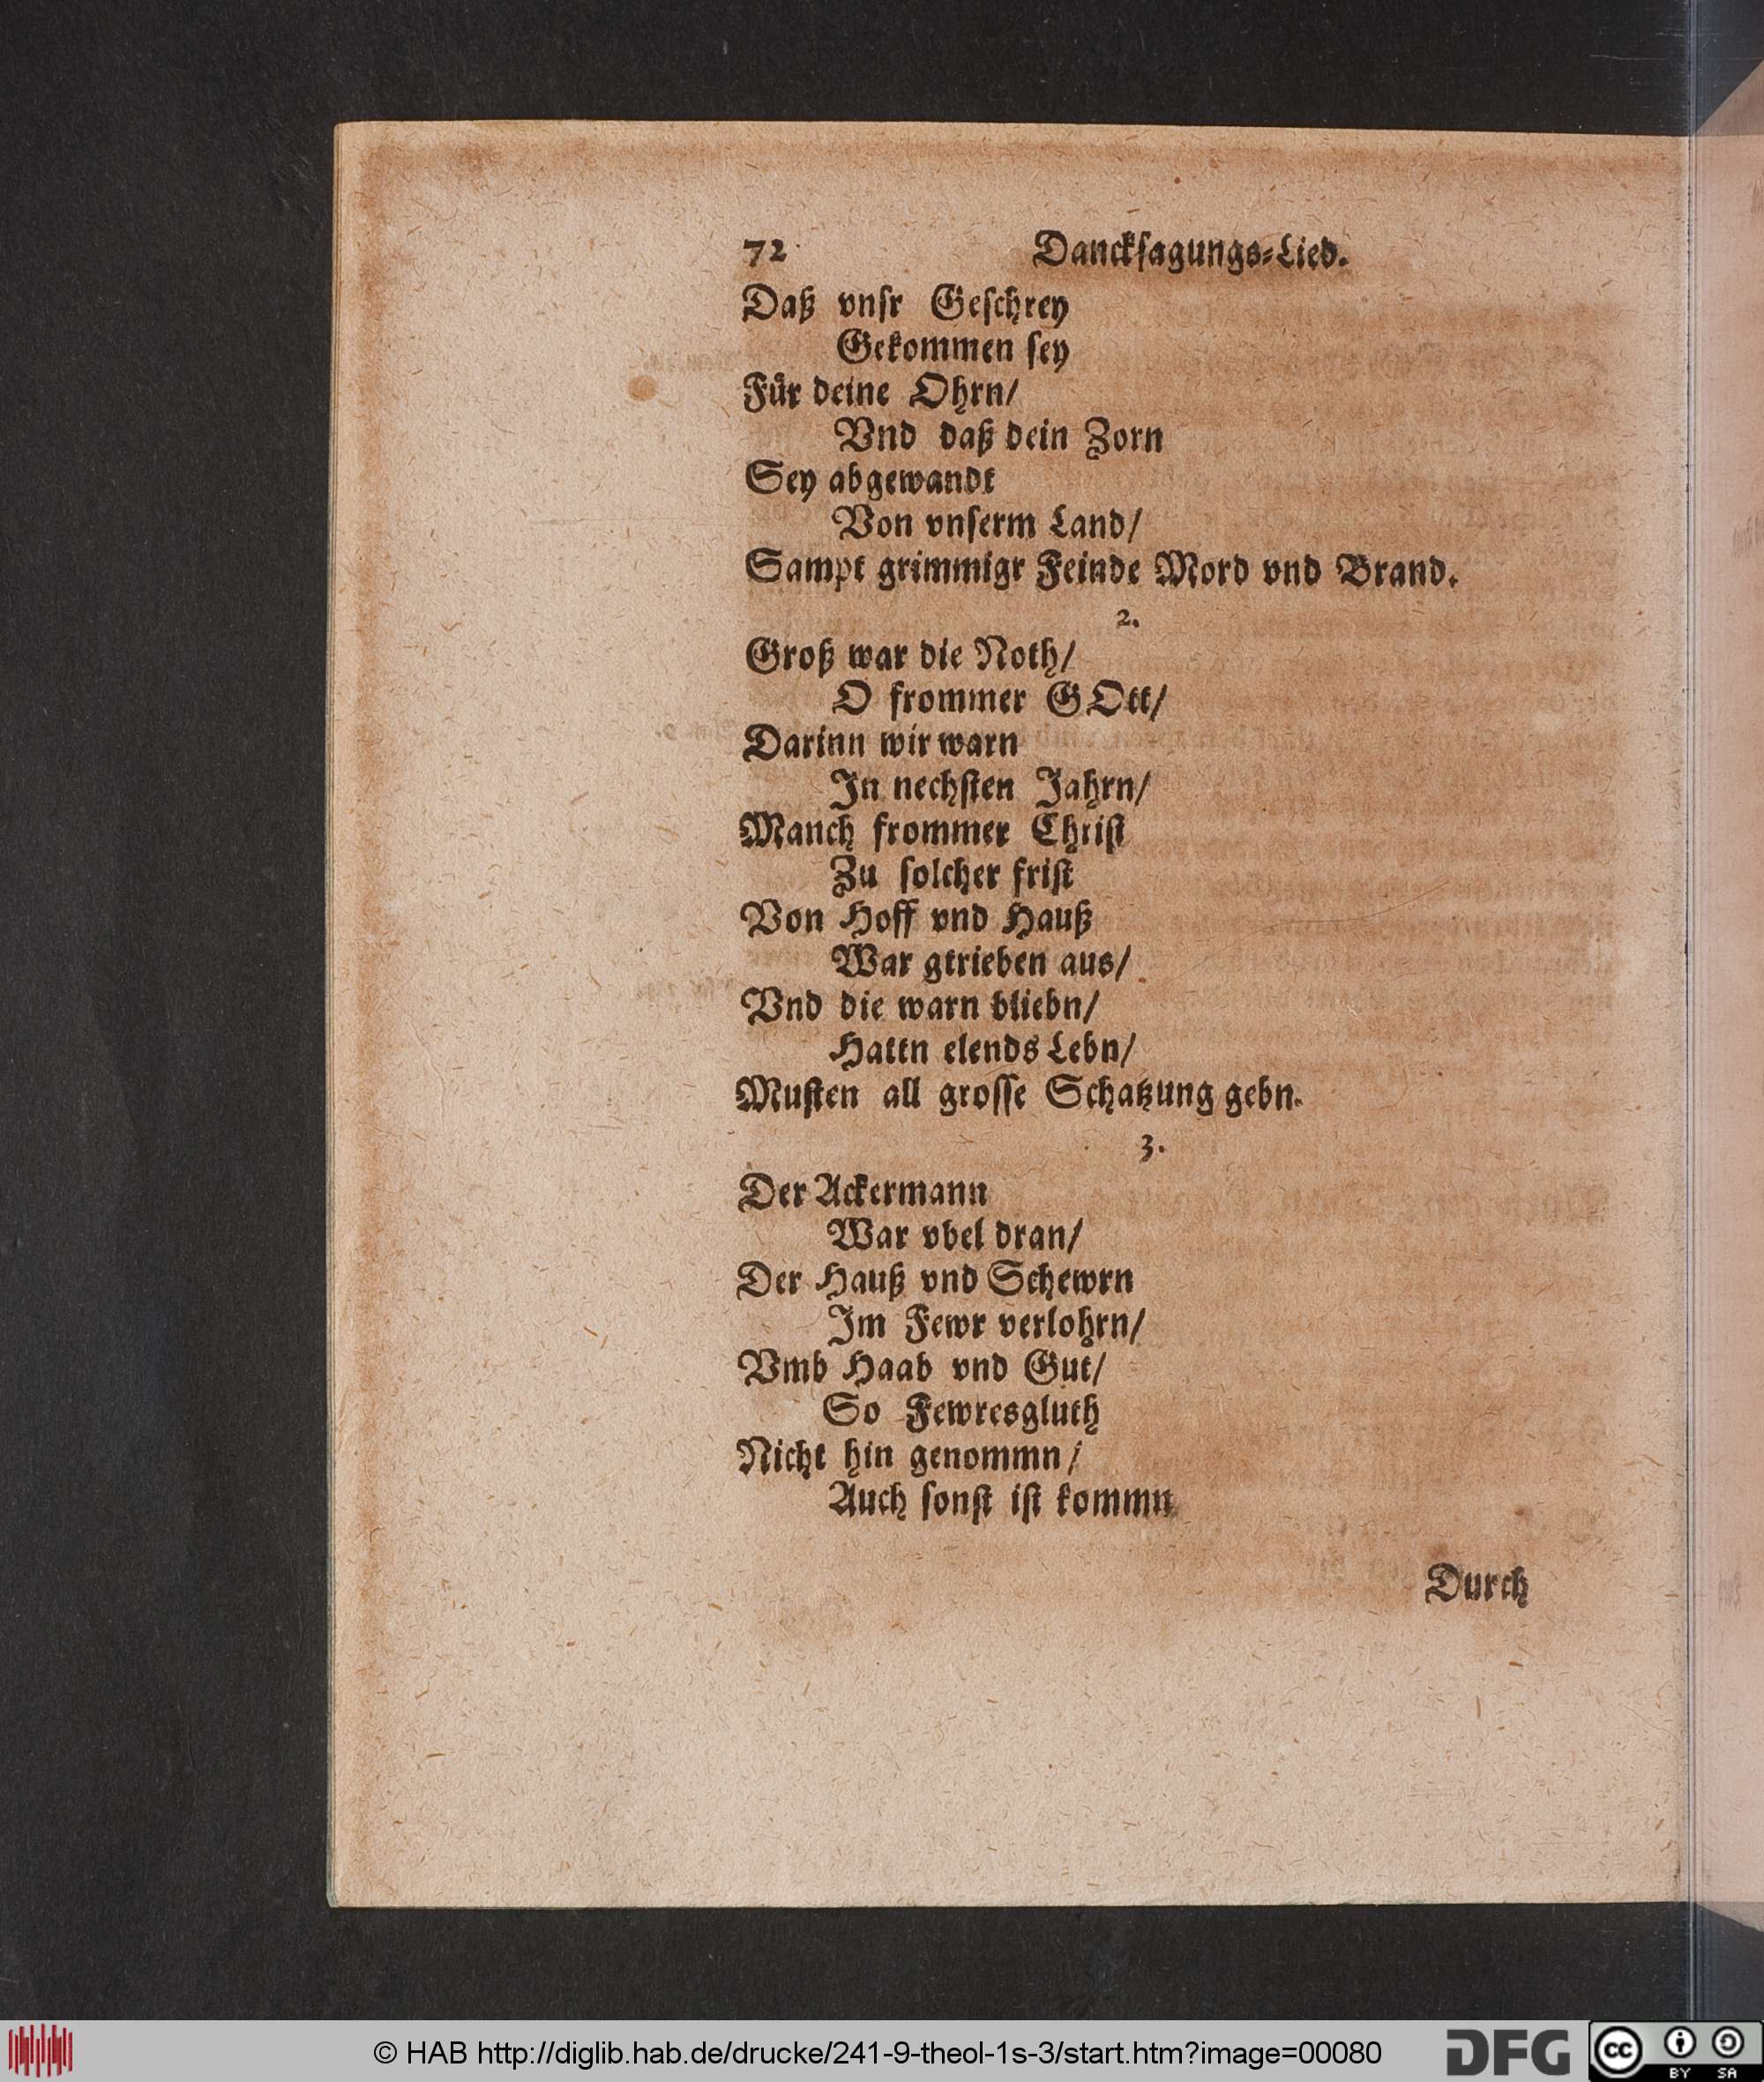 72 Danckſagungs-Lied.
Daß vnſr Geſchrey
Gekommen ſey
Fuͤr deine Ohrn/
Vnd daß dein Zorn
Sey abgewandt
Von vnſerm Land/
Sampt grimmigr Feinde Mord vnd Brand.
2.
Groß war die Noth/
O frommer GOtt/
Darinn wir warn
In nechſten Jahrn/
Manch frommer Chriſt
Zu ſolcher friſt
Von Hoff vnd Hauß
War getrieben aus/
Vnd die warn bliebn/
Hattn elends Lebn/
Muſten all groſſe Schatzung gebn.
3.
Der Ackermann
War vbel dran/
Der Hauß vnd Schewrn
Im Fewr verlohrn/
Vmb Haab vnd Gut/
So Fewresgluth
Nicht hin genommn/
Auch ſonſt iſt kommn
Durch
© HAB http://diglib.hab.de/drucke/241-9-theol-1s-3/start.htm?image=00080
DFG
cc BY SA